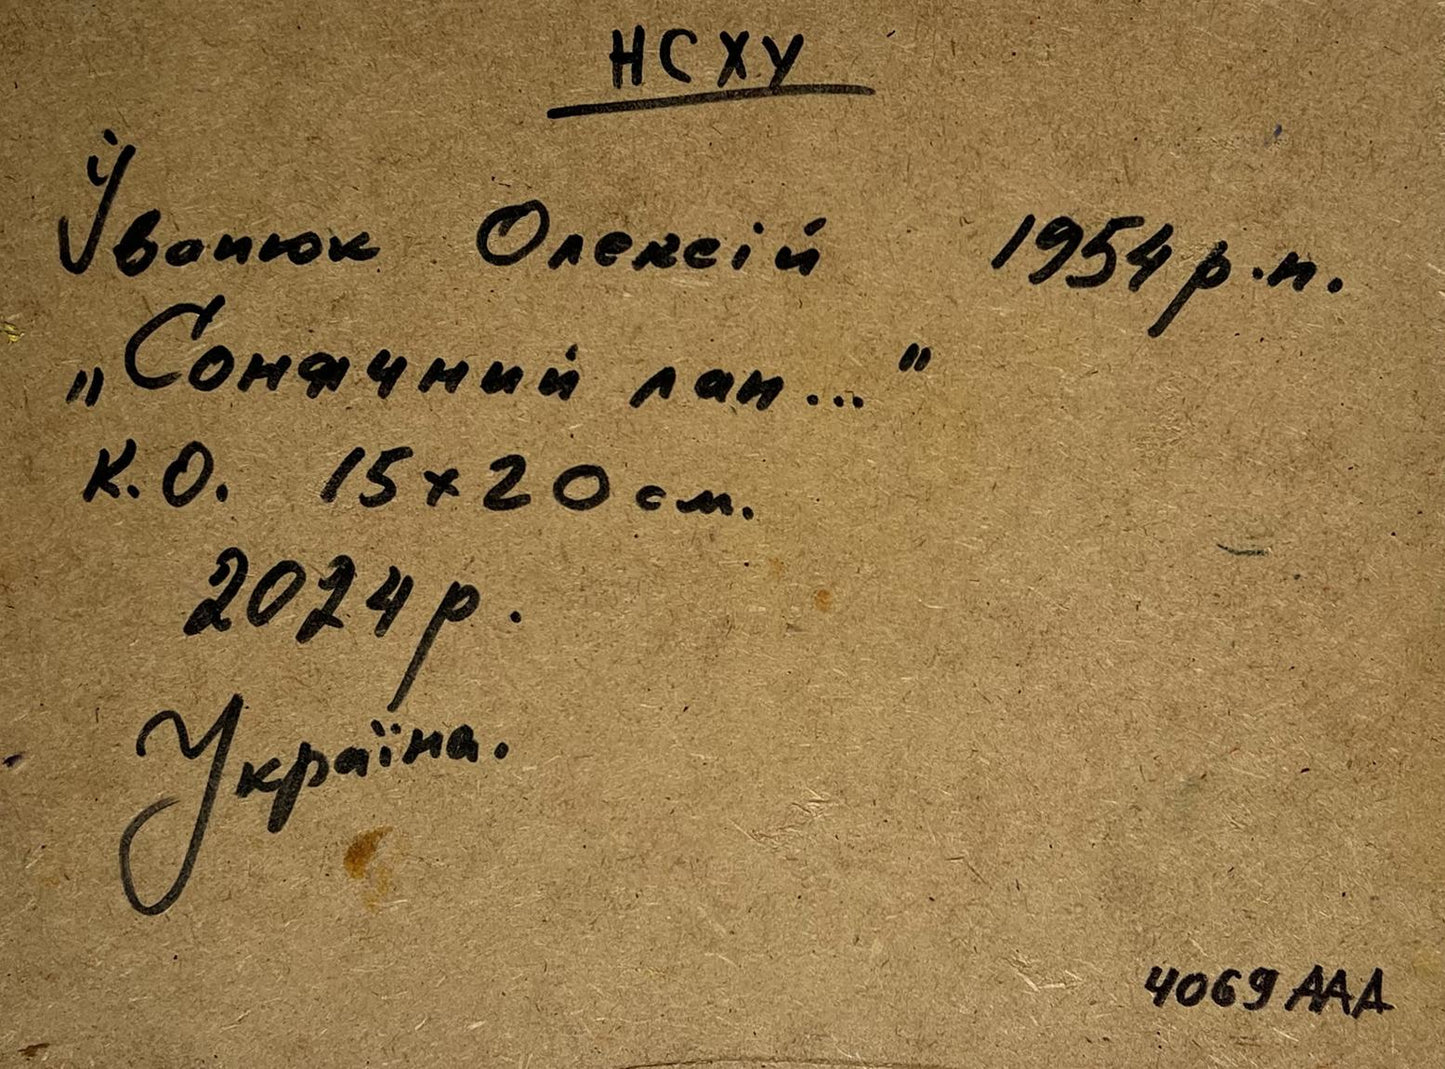 НСХУ
Іванюк Олексій 1954 р.н.
„Сонячний лан..."
К.О. 15х20 см.
2024 р.
Україна.
4069 ААД